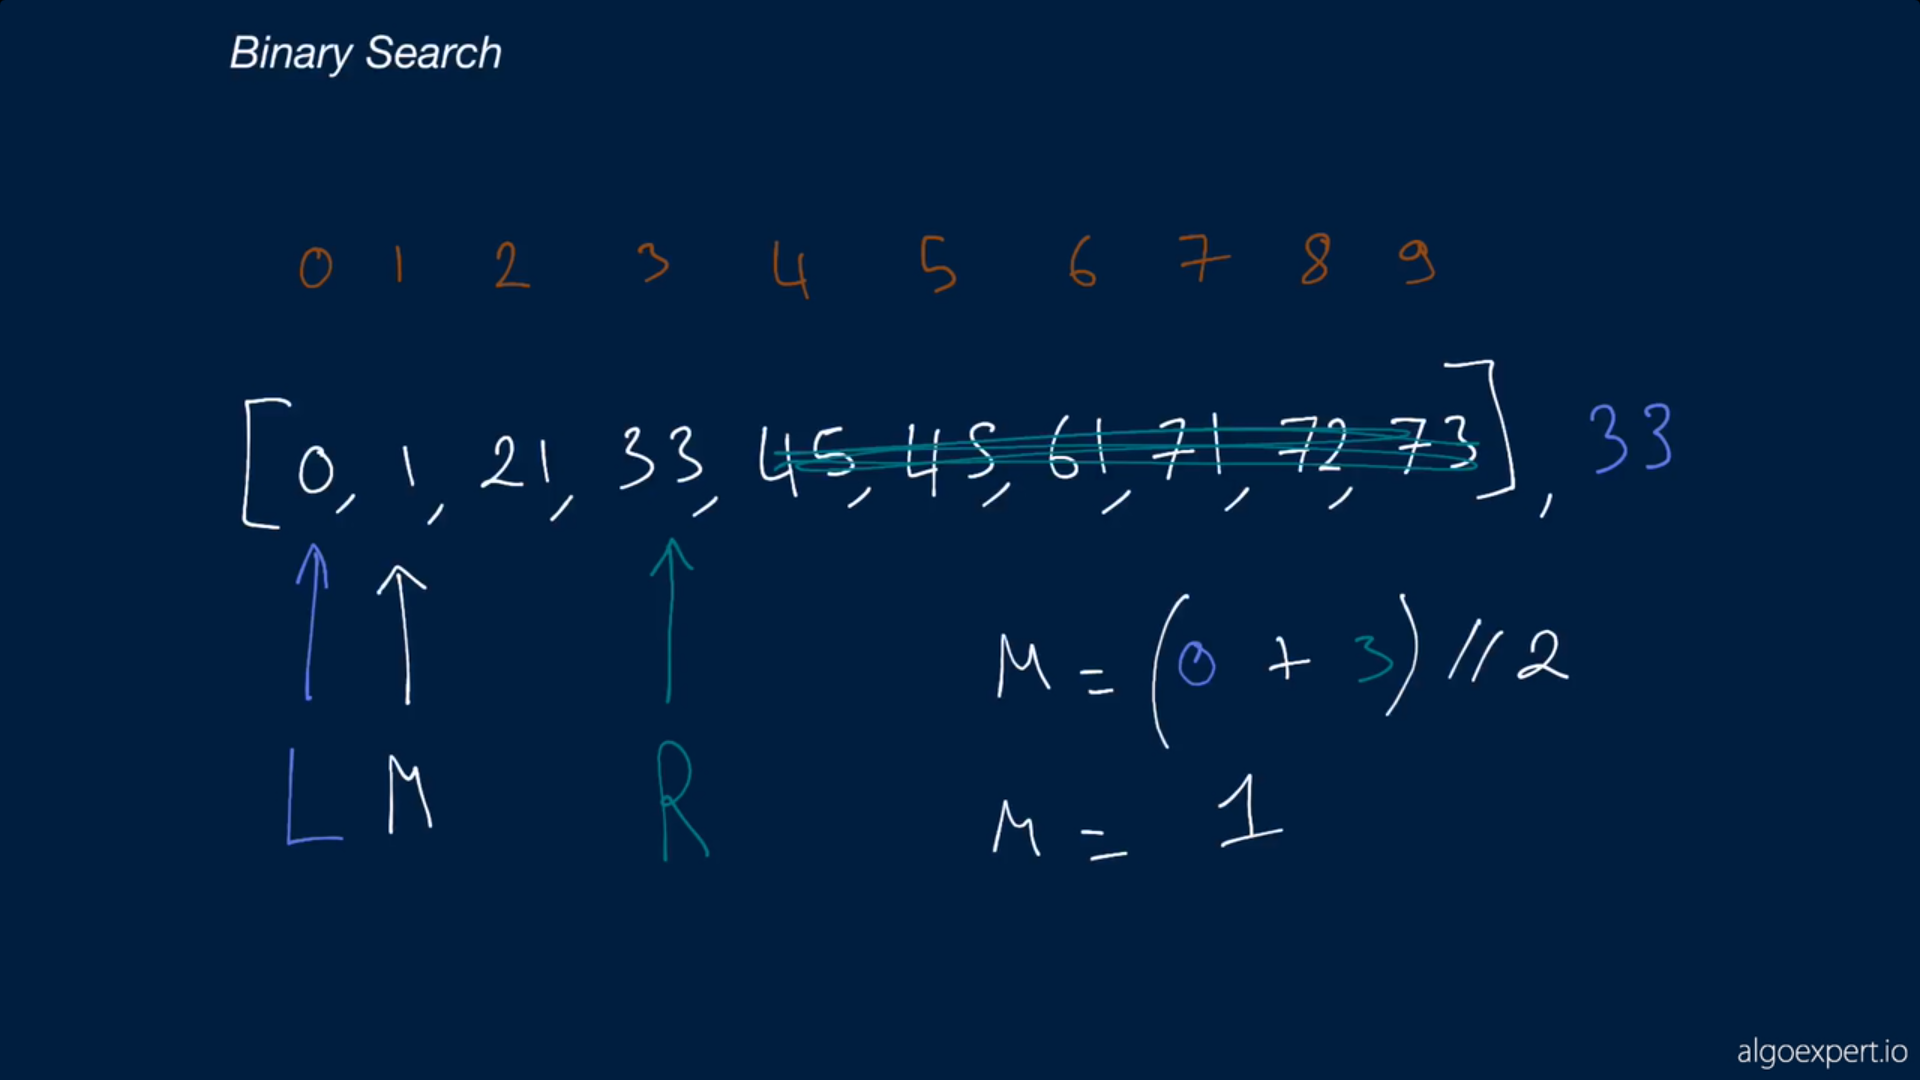 Binary Search
0 1 2 3 4 5 6 7 8 9
[0, 1, 21, 33, 45, 45, 61, 71, 72, 73], 33
M = (0 + 3) // 2
L M R
M = 1
algoexpert.io